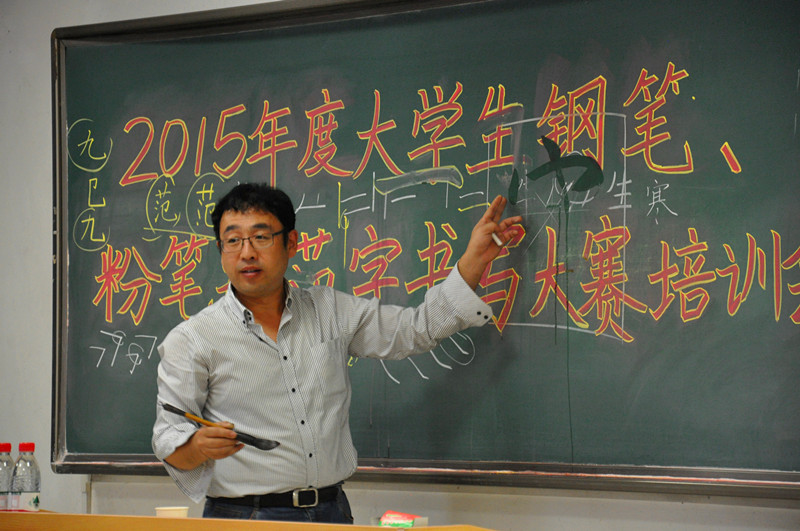 2015年度大学生钢笔、
粉笔 范字书写大赛培训
九
巳
九
范范
生寒